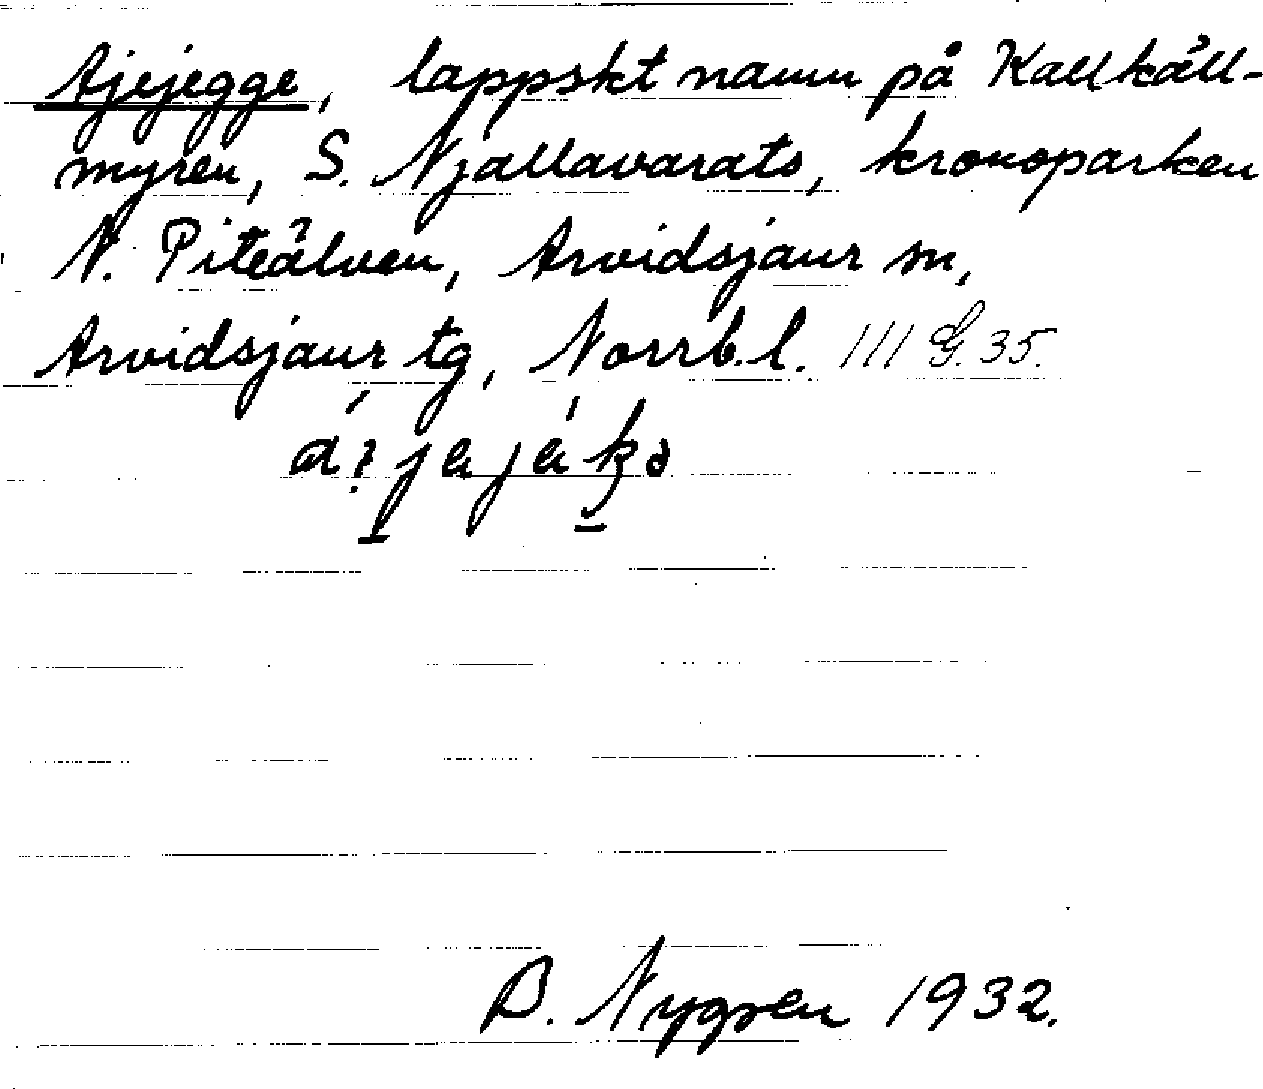 Ajejegge, lappskt namn på Kallkäll-
myren, S. Njallavarats, kronoparken
N. Piteälven, Arvidsjaur sn,
Arvidsjaur tg, Norrb. l. 111 G. 35.
B. Nygren 1932.